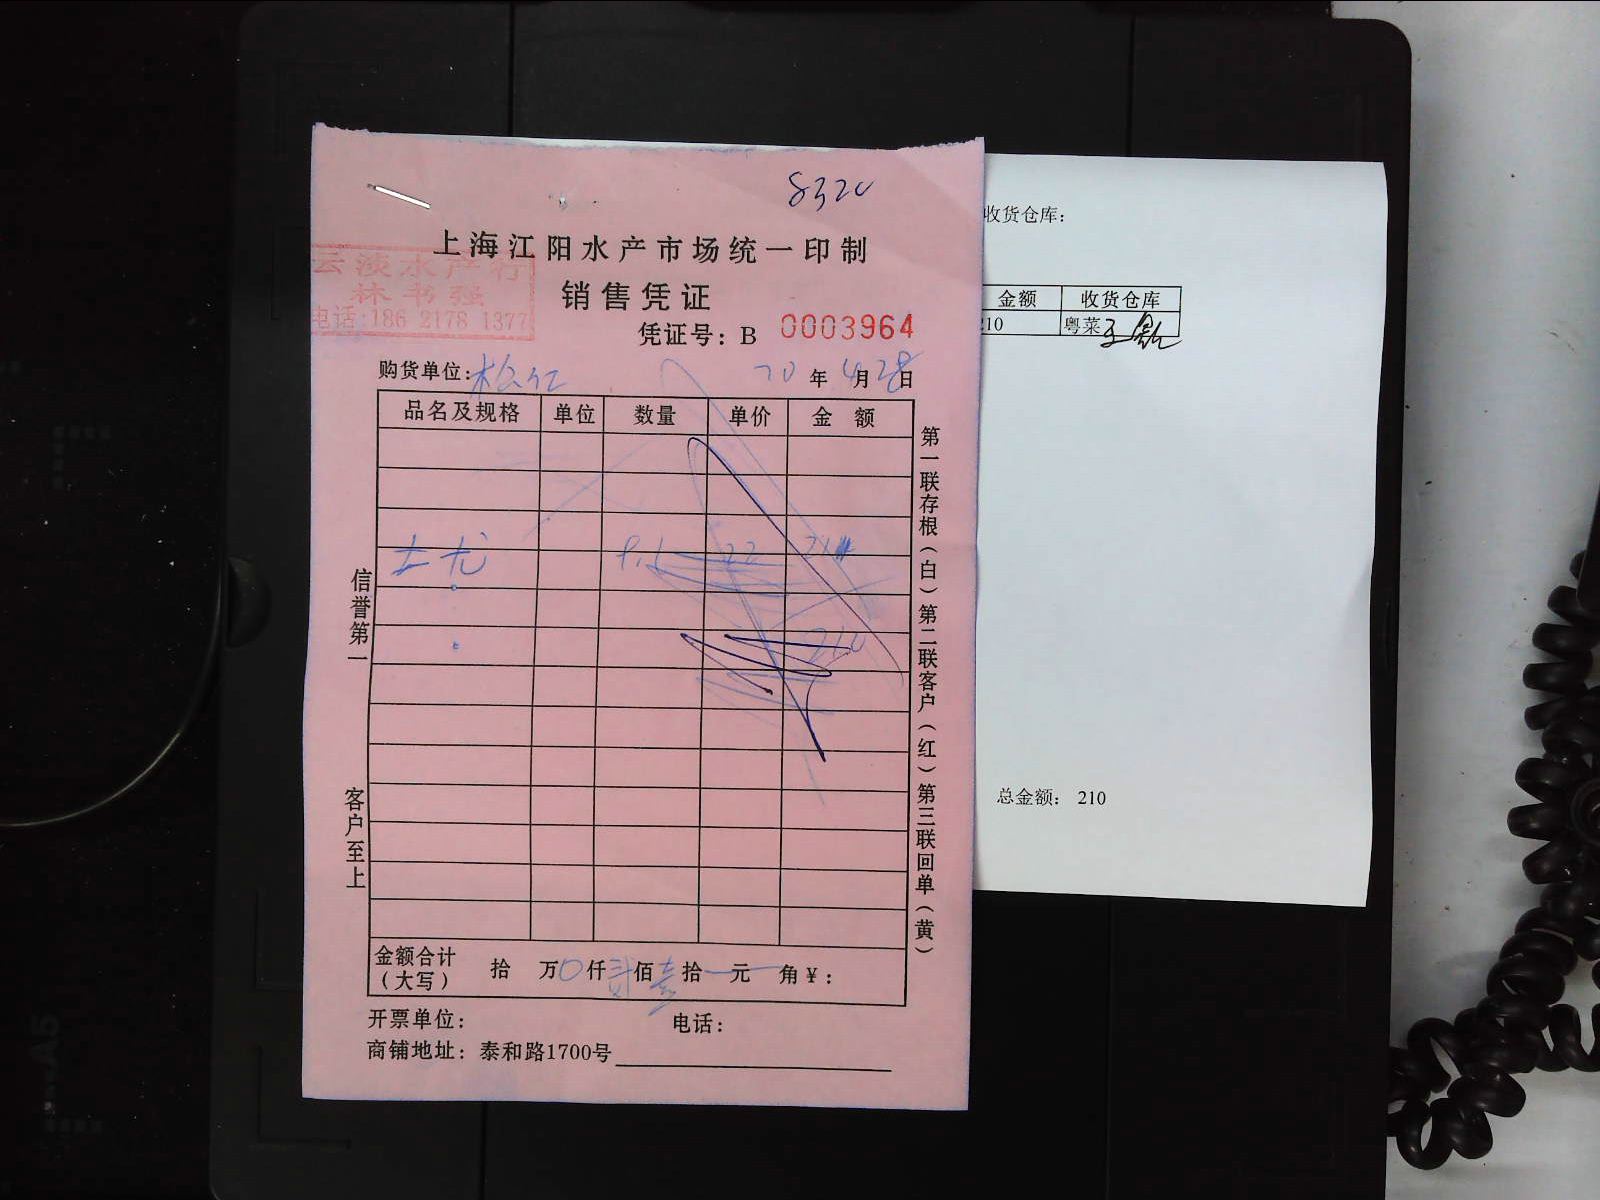 8320
上海江阳水产市场统一印制
云淡水产行
林书强
电话:186 2178 1377
销售凭证
凭证号：B 0003964
购货单位: 松江 20年4月28日
品名及规格 单位 数量 单价 金额
22
210
信誉第一
客户至上
第一联存根（白）第二联客户（红）第三联回单（黄）
金额合计（大写） 拾 万0仟贰佰壹拾 元 角￥：
开票单位： 电话：
商铺地址：泰和路1700号
收货仓库：
金额 收货仓库
210 粤菜
总金额： 210